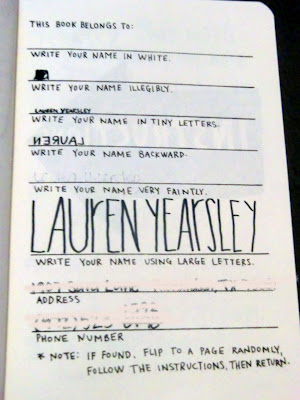 THIS BOOK BELONGS TO:
WRITE YOUR NAME IN WHITE.
WRITE YOUR NAME ILLEGIBLY.
LAUREN YEARSLEY
WRITE YOUR NAME IN TINY LETTERS.
LAUREN
WRITE YOUR NAME BACKWARD.
WRITE YOUR NAME VERY FAINTLY.
LAUREN YEARSLEY
WRITE YOUR NAME USING LARGE LETTERS.
ADDRESS
PHONE NUMBER
* NOTE: IF FOUND, FLIP TO A PAGE RANDOMLY,
FOLLOW THE INSTRUCTIONS, THEN RETURN.